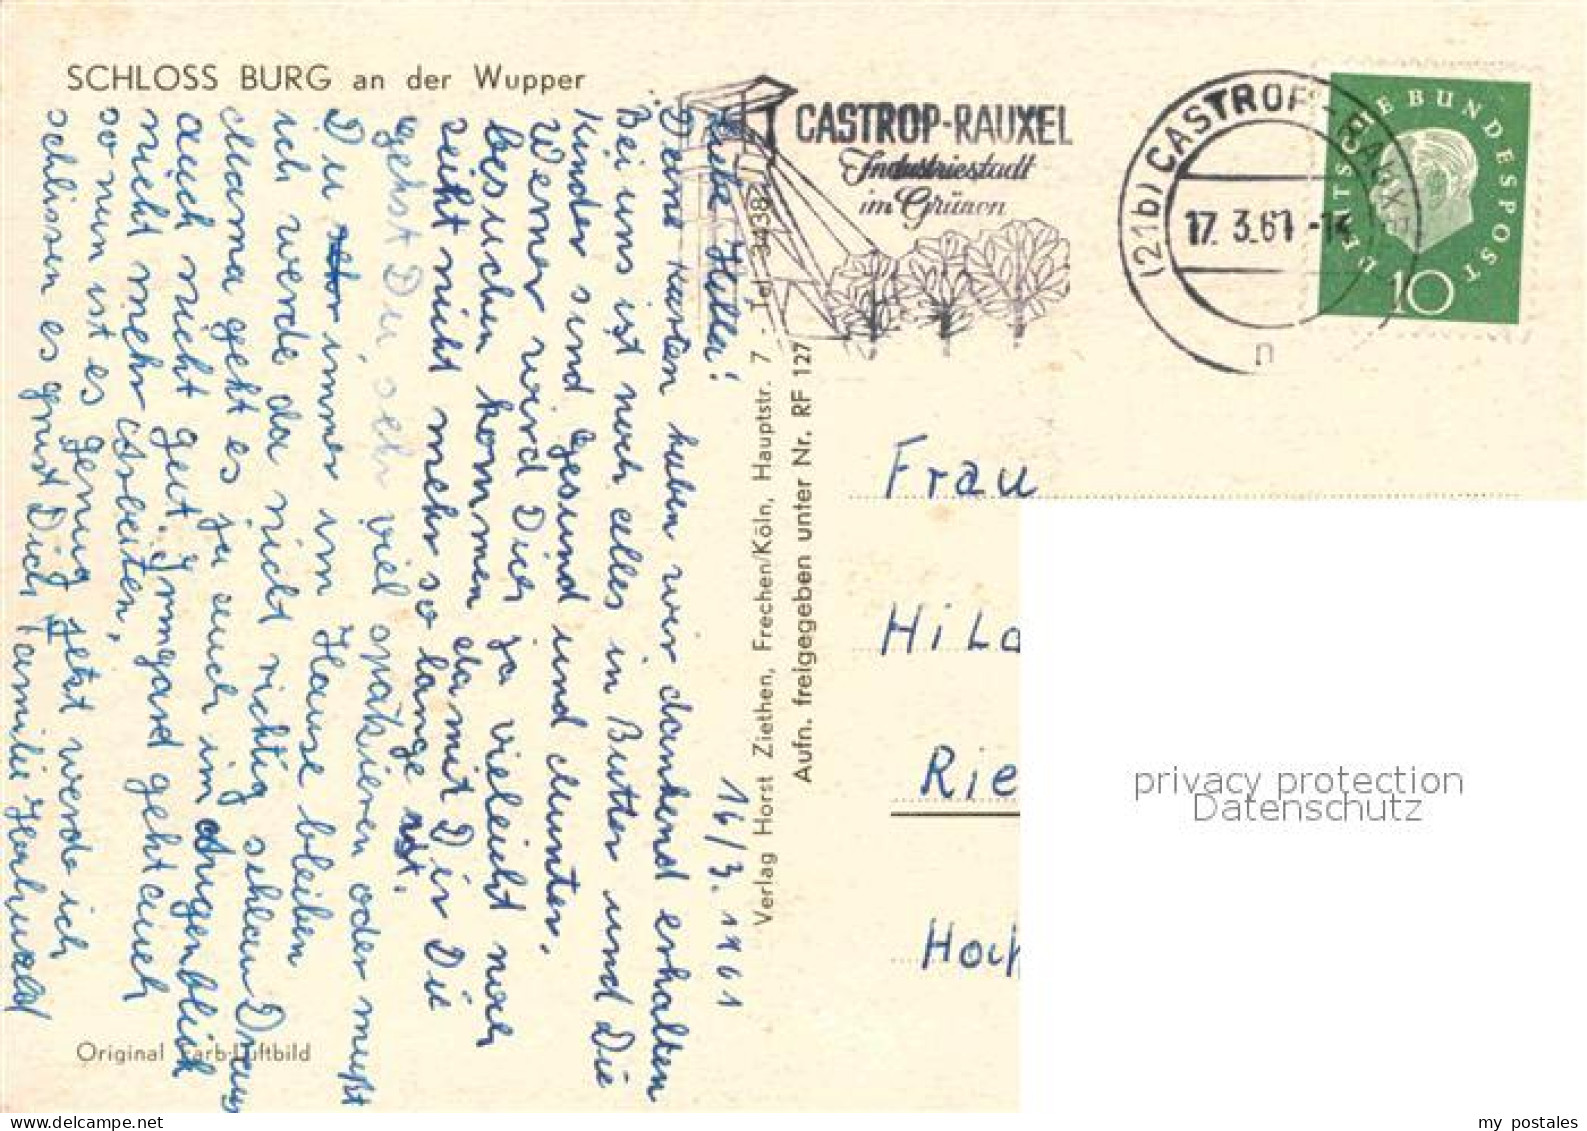 SCHLOSS BURG an der Wupper
CASTROP-RAUXEL
Industriestadt
im Grünen
(21b) CASTROP-RAUXEL
17.3.61-14
n
DEUTSCHE BUNDESPOST
10
14/3. 1961
Liebe Hilla!
Deine Karten haben wir dankend erhalten
Bei uns ist noch alles in Butter und Die
Kinder sind gesund und Munter.
Werner wird Dich ja vieleicht noch
besuchen kommen damit Dir Die
zeiht nicht mehr so lange ist.
gehst Du sehr viel spatzieren oder mußt
Du immer im Hause bleiben
ich werde da nicht richtig schlau Draus
Mama geht es ja auch im Augenblick
auch nicht gut. Irmgard geht auch
nicht mehr Arbeiten,
so nun ist es genug jetzt werde ich
schlissen es grust Dich Familie
Verlag Horst Ziethen, Frechen/Köln, Hauptstr. 7 - Tel. 3438
Aufn. freigegeben unter Nr. RF 127
Original Farb-Luftbild
Frau
Hild
Rie
Hoch
privacy protection
Datenschutz
www.delcampe.net
my_postales